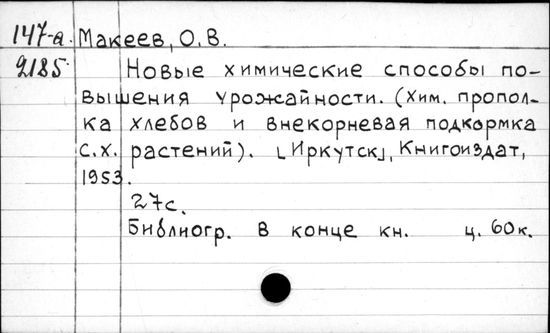 147-а. Макеев, О.В.
2185 Новые химические способы по-
вышения урожайности. (Хим. пропол-
ка хлебов и внекорневая подкормка
с.х. растений). [Иркутск], Книгоиздат,
1953.
27с.
Библиогр. в конце кн. ц. 60к.